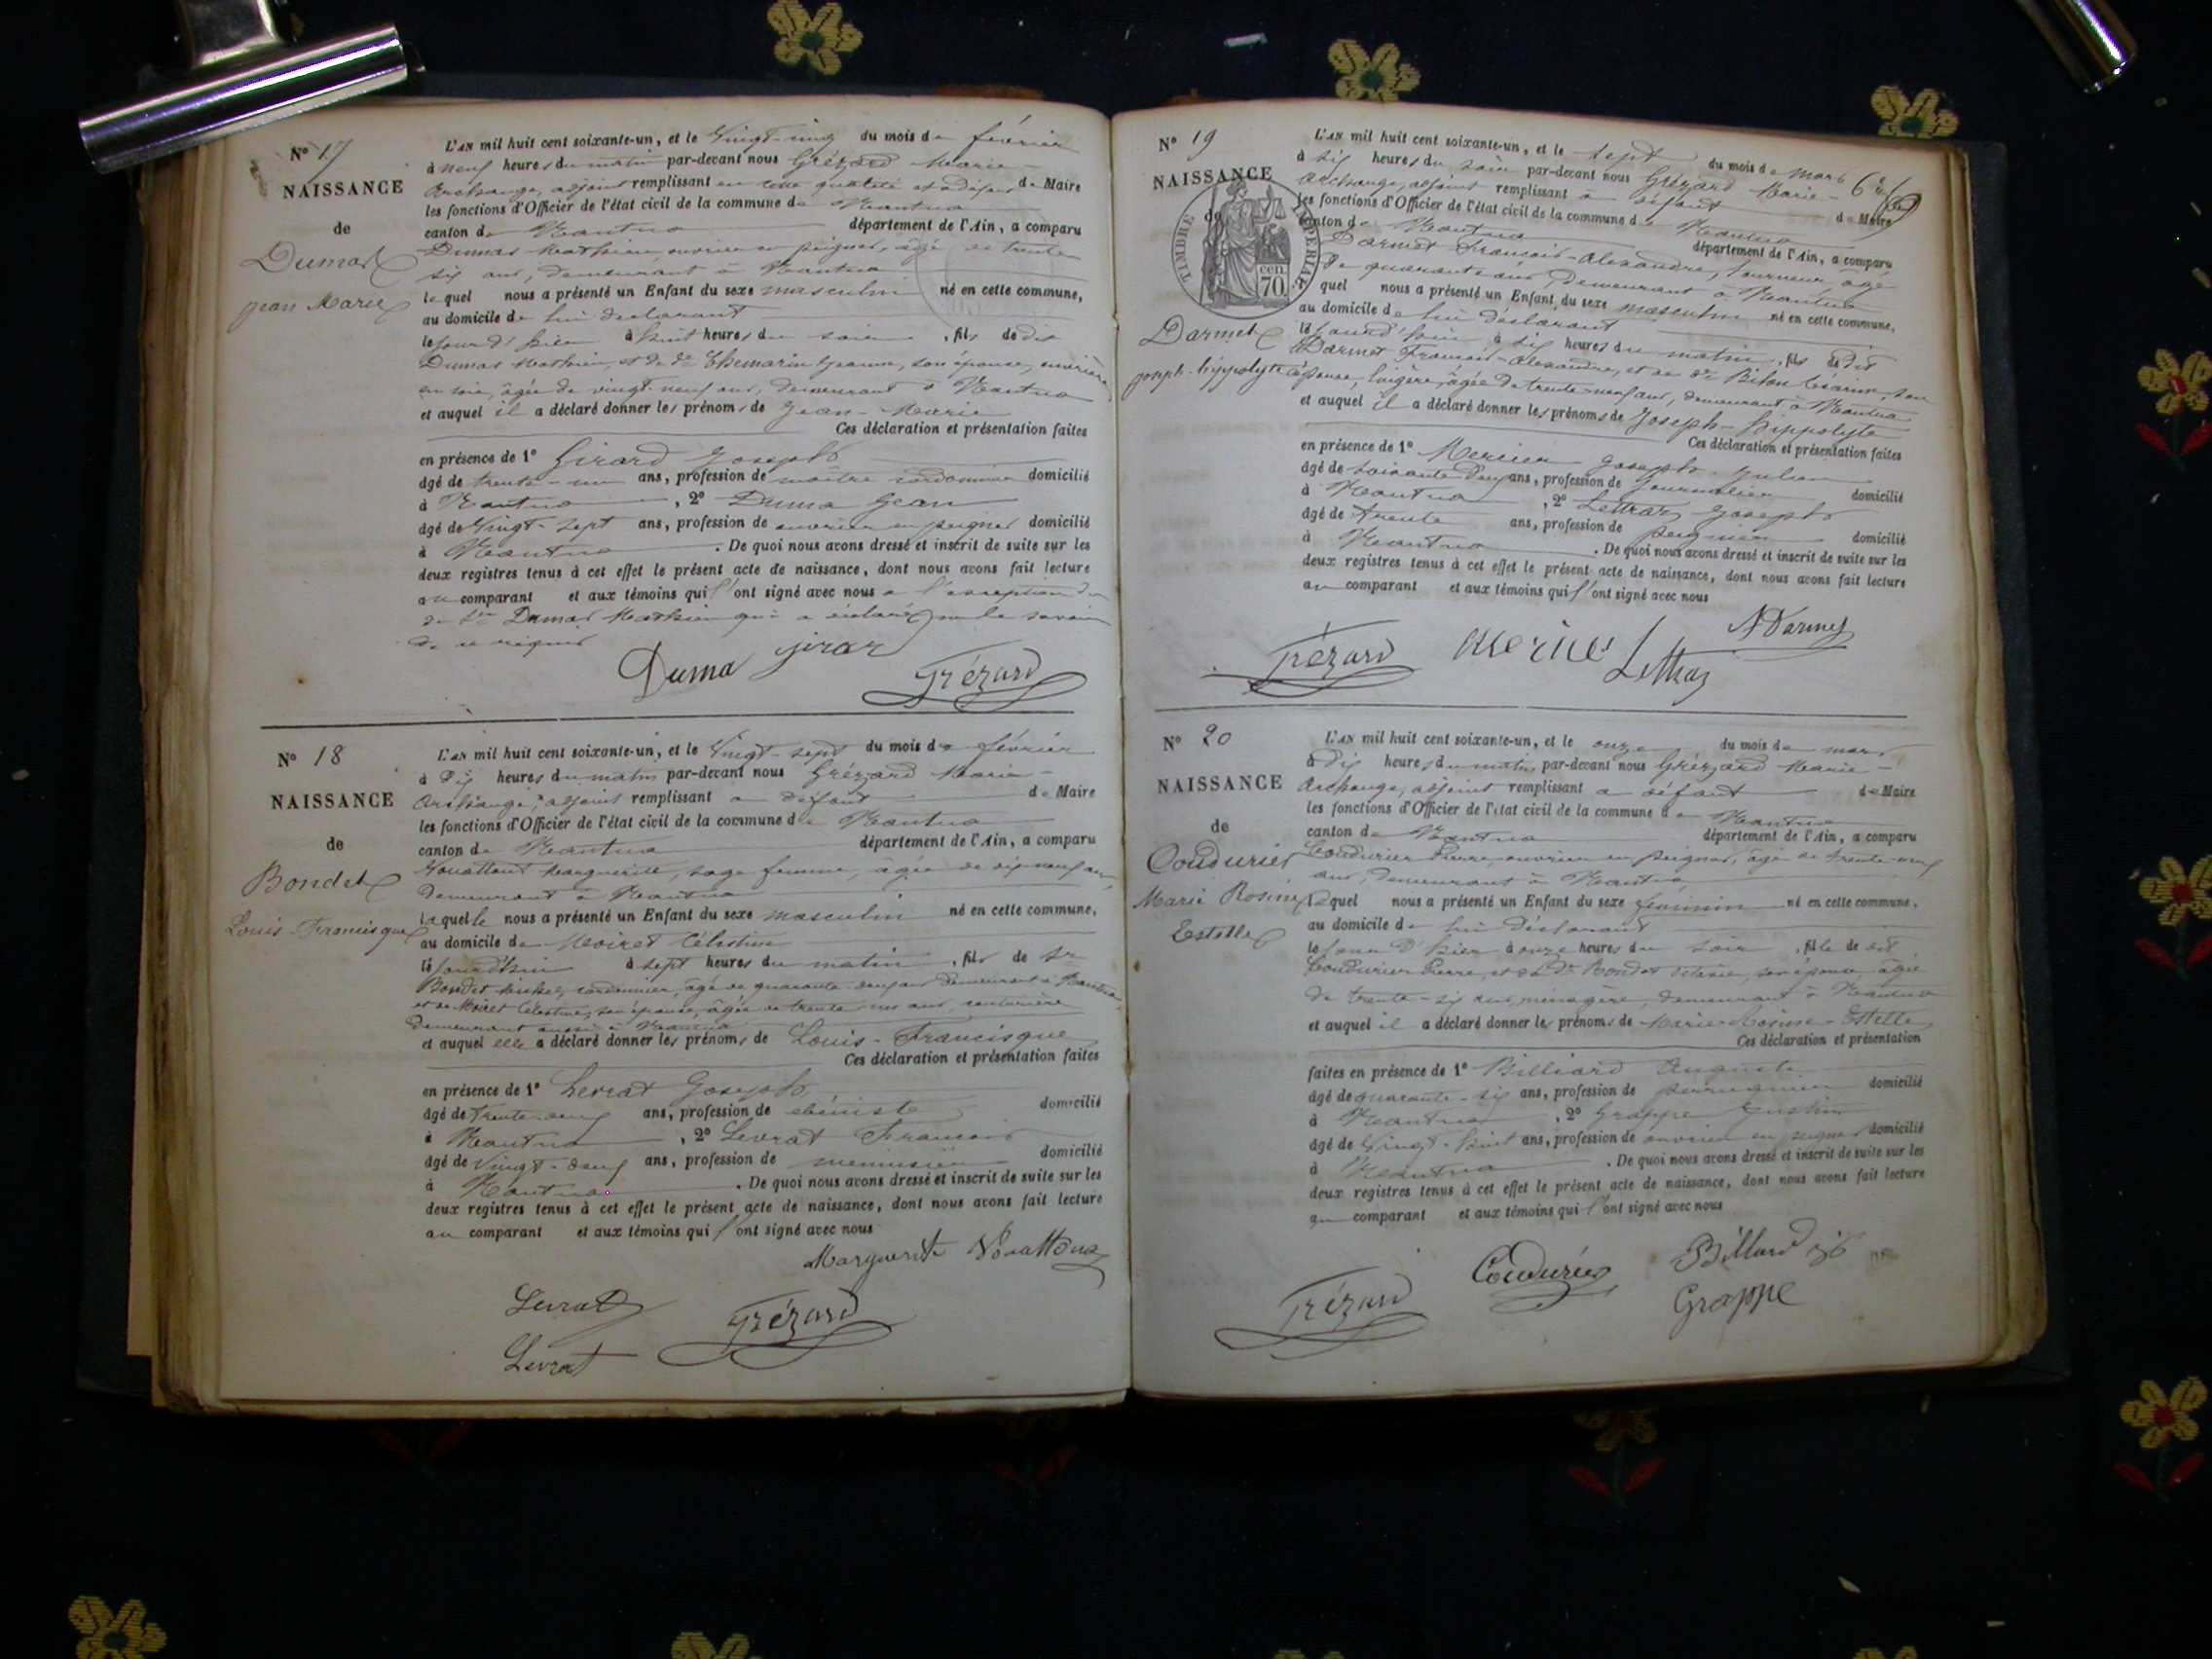 N° 17
NAISSANCE
de
Dumas
Jean Marie
L'AN mil huit cent soixante-un, et le Vingt-cinq du mois de février
à neuf heures du matin par-devant nous Grézard Marie-
Archange, adjoint remplissant en cette qualité et à défaut de Maire
les fonctions d'Officier de l'état civil de la commune de Nantua
canton de Nantua département de l'Ain, a comparu
Dumas Mathieu, ouvrier en peignes, âgé de trente
six ans, demeurant à Nantua
lequel nous a présenté un Enfant du sexe masculin né en cette commune,
au domicile de lui déclarant
le jour d'hier à huit heures du soir, fils de dit
Dumas Mathieu, et de de Thomarin Jeanne, son épouse, ouvrière
en soie, âgée de vingt-neuf ans, demeurant à Nantua
et auquel il a déclaré donner les prénoms de Jean-Marie
Ces déclaration et présentation faites
en présence de 1° Girard Joseph
âgé de trente-un ans, profession de maître cordonnier domicilié
à Nantua, 2° Duma Jean
âgé de Vingt-sept ans, profession de ouvrier en peignes domicilié
à Nantua. De quoi nous avons dressé et inscrit de suite sur les
deux registres tenus à cet effet le présent acte de naissance, dont nous avons fait lecture
au comparant et aux témoins qui l'ont signé avec nous à l'exception
du Sr Dumas Mathieu qui a déclaré ne le savoir
de ce requis
Duma girar Grézard
N° 18
NAISSANCE
de
Bondet
Louis-Francisque
L'AN mil huit cent soixante-un, et le Vingt-sept du mois de février
à Dix heures du matin par-devant nous Grézard Marie-
Archange, adjoint remplissant à défaut de Maire
les fonctions d'Officier de l'état civil de la commune de Nantua
canton de Nantua département de l'Ain, a comparu
Marguerite, sage femme, âgée de dix-neuf ans,
demeurant à Nantua
laquelle nous a présenté un Enfant du sexe masculin né en cette commune,
au domicile de Moiret Célestine
le jourd'hui à sept heures du matin, fils de Sr
Bondet Michel, cordonnier, âgé de quarante-deux ans demeurant à Nantua
et de Moiret Célestine, son épouse, âgée de trente-un ans, couturière
demeurant aussi à Nantua
et auquel elle a déclaré donner les prénoms de Louis-Francisque
Ces déclaration et présentation faites
en présence de 1° Levrat Joseph
âgé de Trente-deux ans, profession de ébéniste domicilié
à Nantua, 2° Levrat François
âgé de Vingt-deux ans, profession de menuisier domicilié
à Nantua. De quoi nous avons dressé et inscrit de suite sur les
deux registres tenus à cet effet le présent acte de naissance, dont nous avons fait lecture
au comparant et aux témoins qui l'ont signé avec nous
Marguerite
Levrat Grézard
Levrat
N° 19
NAISSANCE
de
TIMBRE IMPERIAL
70 cen.
Darmet
Joseph-hippolyte
L'AN mil huit cent soixante-un, et le sept du mois de mars
à six heures du soir par-devant nous Grézard Marie-
Archange, adjoint remplissant à défaut de Maire
les fonctions d'Officier de l'état civil de la commune de Nantua
canton de Nantua département de l'Ain, a comparu
Darmet François-Alexandre, tourneur, âgé
de quarante ans, demeurant à Nantua
quel nous a présenté un Enfant du sexe masculin né en cette commune,
au domicile de lui déclarant
le jourd'hui à six heures du matin, fils de dit
Darmet François-Alexandre, et de de Césarine, son
épouse, lingère, âgée de trente-neuf ans, demeurant à Nantua
et auquel il a déclaré donner les prénoms de Joseph-hippolyte
Ces déclaration et présentation faites
en présence de 1° Mercier Joseph-Julien
âgé de soixante-deux ans, profession de journalier domicilié
à Nantua, 2° Lettraz Joseph
âgé de trente ans, profession de domicilié
à Nantua. De quoi nous avons dressé et inscrit de suite sur les
deux registres tenus à cet effet le présent acte de naissance, dont nous avons fait lecture
au comparant et aux témoins qui l'ont signé avec nous
A Darmet
Grézard Lettraz
N° 20
NAISSANCE
de
Coudurier
Marie Rosine
Estelle
L'AN mil huit cent soixante-un, et le onze du mois de mars
à Dix heures du matin par-devant nous Grézard Marie-
Archange, adjoint remplissant à défaut de Maire
les fonctions d'Officier de l'état civil de la commune de Nantua
canton de Nantua département de l'Ain, a comparu
Coudurier Pierre, ouvrier en peignes, âgé de trente-neuf
ans, demeurant à Nantua
lequel nous a présenté un Enfant du sexe féminin né en cette commune,
au domicile de lui déclarant
le jour d'hier à onze heures du soir, fille de dit
Coudurier Pierre, et de de Bondet, son épouse, âgée
de trente-six ans, ménagère, demeurant à Nantua
et auquel il a déclaré donner les prénoms de Marie-Rosine-Estelle
Ces déclaration et présentation
faites en présence de 1° Billiard Auguste
âgé de quarante-six ans, profession de perruquier domicilié
à Nantua, 2° Grappe Justin
âgé de Vingt-huit ans, profession de ouvrier en peignes domicilié
à Nantua. De quoi nous avons dressé et inscrit de suite sur les
deux registres tenus à cet effet le présent acte de naissance, dont nous avons fait lecture
au comparant et aux témoins qui l'ont signé avec nous
Grézard Coudurier Billard
Grappe